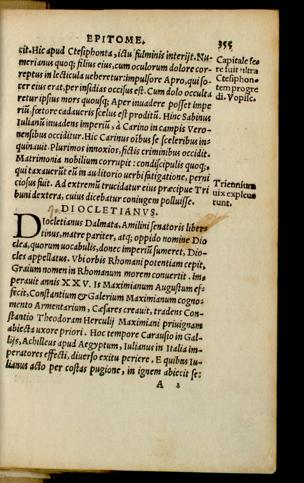 EPITOME. 355
cit. Hic apud Ctesiphonta, ictu fulminis interijt. Nu-
merianus quoq; filius eius, cum oculorum dolore cor-
reptus in lecticula ueheretur: impulsore Apro, qui so-
cer eius erat, per insidias occisus est. Cum dolo occulta
retur ipsius mors quousq; Aper inuadere posset impe
riũ, fœtore cadaueris scelus est proditũ. Hinc Sabinus
Iulianũ inuadens imperiũ, à Carino in campis Vero-
nensibus occiditur. Hic Carinus oĩbus se sceleribus in-
quinauit. Plurimos innoxios, fictis criminibus occidit.
Matrimonia nobilium corrupit: condiscipulis quoq;,
qui taxauerũt eũ in auditorio uerbi fatigatione, perni
ciosus fuit. Ad extremũ trucidatur eius præcipue Tri
buni dextera, cuius dicebatur coniugem polluisse.
Capitale fere fuit ultra
Ctesiphontem progre
di. Vopisc.
Triennium
uix expleuerunt.
DIOCLETIANVS.
Diocletianus Dalmata, Anulini senatoris liber-
tinus, matre pariter, atq; oppido nomine Dio
clea, quorum uocabulis, donec imperiũ sumeret, Dio-
cles appellatus. Vbi orbis Rhomani potentiam cepit,
Graium nomen in Rhomanum morem conuertit. im-
perauit annis XXV. Is Maximianum Augustum ef-
fecit, Constantium & Galerium Maximianum cogno-
mento Armentarium, Cæsares creauit, tradens Con-
stantio Theodoram Herculij Maximiani priuignam
abiecta uxore priori. Hoc tempore Carausio in Gal-
lijs, Achilleus apud Aegyptum, Iulianus in Italia im-
peratores effecti, diuerso exitu periere. E quibus Iu-
lianus acto per costas pugione, in ignem abiecit se:
A 2